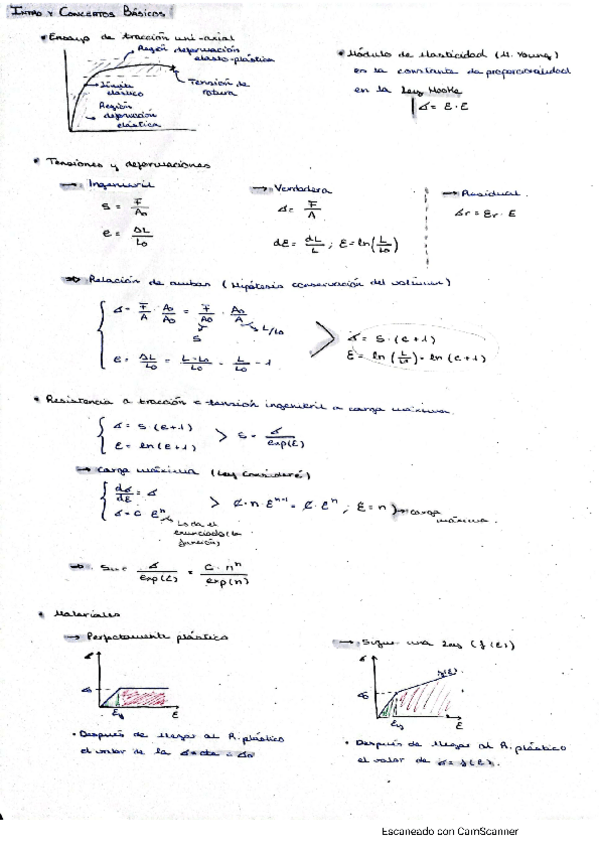 INTRO Y CONCEPTOS BÁSICOS
• Ensayo de tracción uni-axial
Región deformación
elasto-plástica
Límite
elástico
Tensión de
rotura
Región
deformación
elástica
• Módulo de Elasticidad (M. Young)
en la constante de proporcionalidad
en la Ley Hooke
σ = E · ε
• Tensiones y deformaciones
→ Ingenieril
s = F/A₀
e = ΔL/L₀
→ Verdadera
σ = F/A
dε = dL/L ; ε = ln(L/L₀)
→ Residual
σr = εr · E
⇒ Relación de ambas (Hipótesis conservación del volumen)
σ = F/A · A₀/A₀ = F/A₀ · A₀/A
s
L/L₀
e = ΔL/L₀ = L-L₀/L₀ = L/L₀ - 1
σ = s · (e+1)
ε = ln(L/L₀) = ln(e+1)
• Resistencia a tracción = tensión ingenieril a carga máxima
σ = s · (e+1)
ε = ln(e+1)
> s = σ/exp(ε)
→ carga máxima (Ley Considère)
dσ/dε = σ
σ = C · εⁿ
> C · n · εⁿ⁻¹ = C · εⁿ ; ε = n → carga máxima
Lo da el
enunciado (la
función)
⇒ Su = σ/exp(ε) = C · nⁿ/exp(n)
• Materiales
→ Perfectamente plástico
→ Sigue una ley (f(ε))
σ
ε
σ
f(ε)
ε
• Después de llegar al R. plástico
el valor de la σ = cte
• Después de llegar al R. plástico
el valor de σ = f(ε).
Escaneado con CamScanner